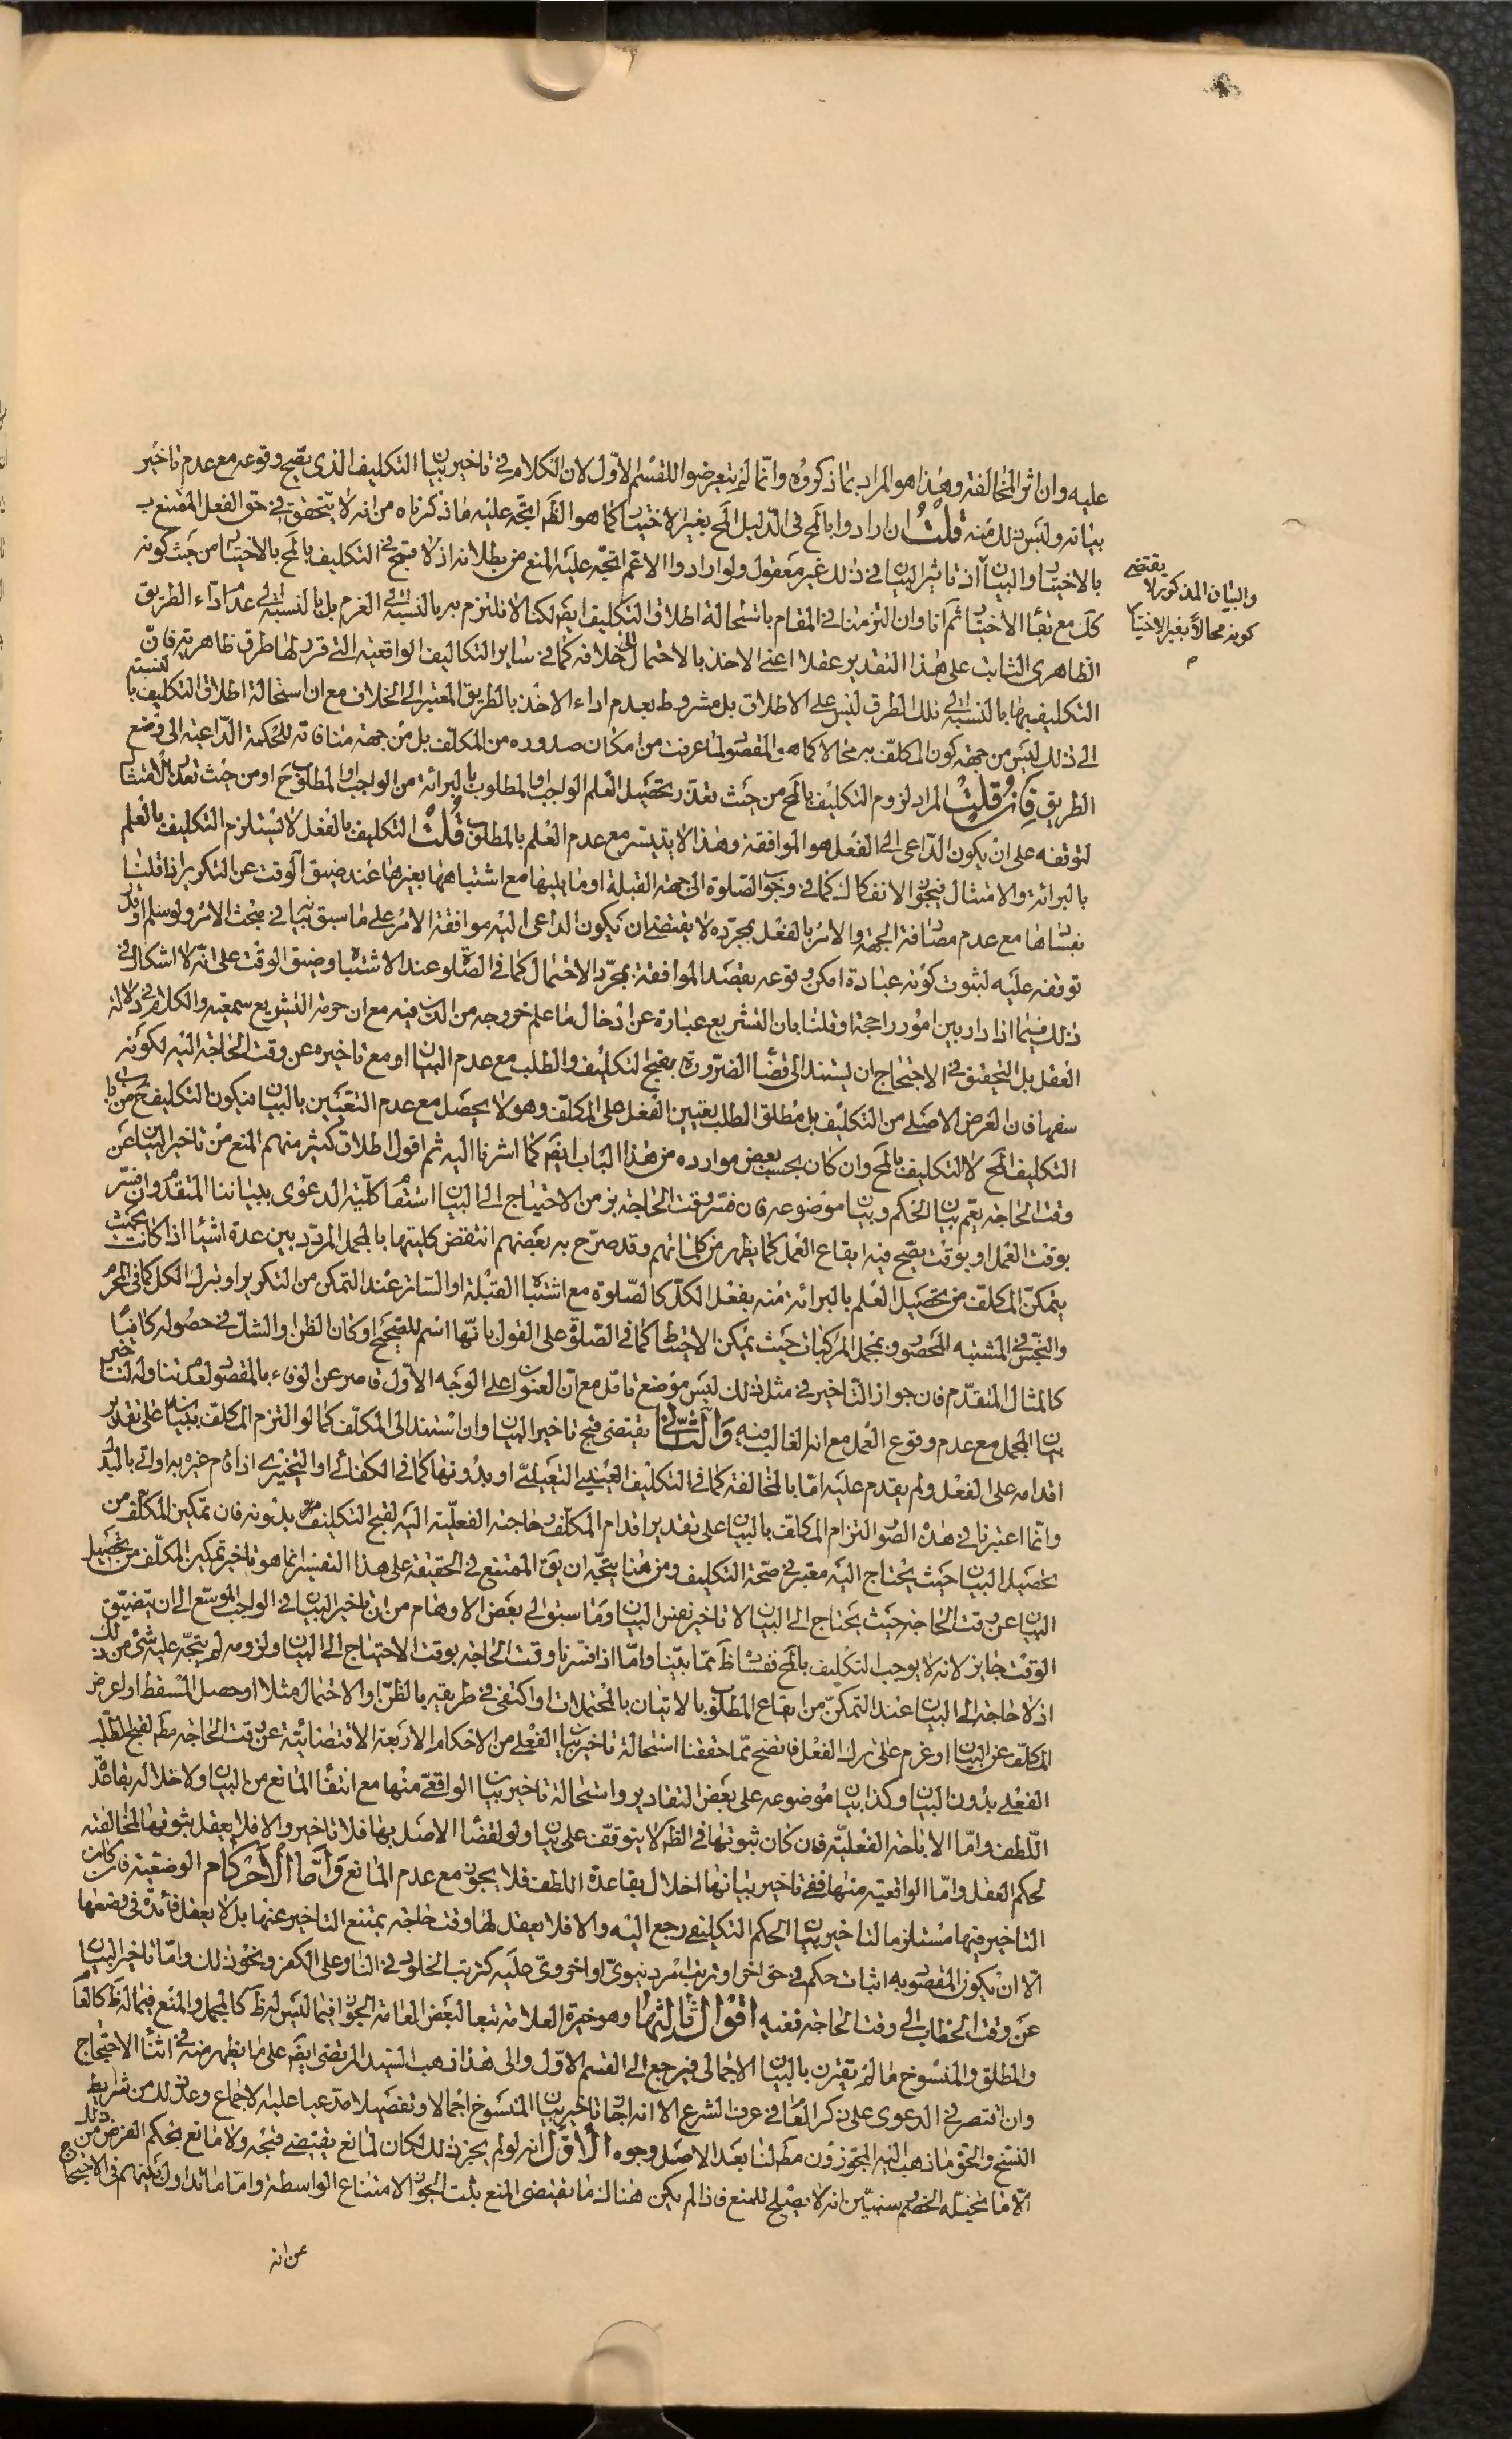 عليه وان اثر المخالفة وهذا هو المراد بما ذكروه وانّما لم يتعرضوا للقسم الاوّل لان الكلام في تاخير بيان التكليف الذى يصح وقوعه مع عدم تاخير
بيانه وليس ذلك منه قلت ان ارادوا بالمح في الدّليل المح بغير الاختيار كما هو الظّ اتجه عليه ما ذكرناه من انه لا يتحقق في حق الفعل الممتنع ب
بالاختيار والبيان اذ تاثير البيان في ذلك غير معقول ولو ارادوا الاعّم اتّجه عليه المنع من بطلانه اذ لا قبح في التكليف بالمح بالاختيار من حيث كونه
والبيان المذكور لا يقتضى
كونه محالاً بغير الاختيار
م
كك مع بقاء الاختيار ثم انا وان التزمنا في المقام باستحالة اطلاق التكليف ايضً لكنا لا نلتزم به بالنسبة الى العزم بل بالنسبة الى عدم اداء الطريق
الظاهرى الثابت على هذا التقدير عقلا اعنى الاخذ بالاحتمال خلافه كما في ساير التكاليف الواقعية التى قرر لها طرق ظاهرية فانّ
التكليف بها بالنسبة الى تلك الطرق ليس على الاطلاق بل مشروط بعدم اداء الاخذ بالطريق المعتبر الى الخلاف مع ان استحالة اطلاق التكليف بالنسبة
الى ذلك ليس من جهة كون المكلّف به محالا كما هو المقصود لما عرفت من امكان صدوره من المكلّف بل من جهة منافاته للحكمة الدّاعية الى وضع
الطريق فان قلت المراد لزوم التكليف بالمح من حيث تعذّر تحصيل العلم الواجب او المطلوب بالبرائة من الواجب او المطلوب ح او من حيث تعذّر الامتثال
لتوقفه على ان يكون الدّاعى الى الفعل هو الموافقة وهذا لا يتيسّر مع عدم العلم بالمطلوب قلت التكليف بالفعل لا يستلزم التكليف بالعلم
بالبرائة والامتثال فيجوز الانفكاك كما في وجوب الصّلوة الى جهة القبلة او ما يليها مع اشتباهها بغيرها عند ضيق الوقت عن التكرير ان قلنا
بفسادها مع عدم مصادفة الجهة والامر بالفعل بمجرّده لا يقتضى ان يكون الداعى اليه موافقة الامر على ما سبق بيانه في مبحث الامر ولو سلم او قدر
توقفه عليه لثبوت كونه عبادة امكن وقوعه بقصد الموافقة بمجرّد الاحتمال كما في الصّلوة عند الاشتباه وضيق الوقت على انّه لا اشكال في
ذلك فيما اذا دار بين امور راجحة او قلنا بان التشريع عبارة عن ادخال ما علم خروجه من الدين فيه مع ان حرمة التشريع سمعية والكلام في دلالة
العقل بل التحقيق في الاحتجاج ان يستند الى قضاء الضّرورة بقبح التكليف والطلب مع عدم البيان او مع تاخيره عن وقت الحاجة اليه لكونه
سفها فان الغرض الاصلى من التكليف بل مطلق الطلب تعيين الفعل على المكلّف وهو لا يحصل مع عدم التعيين بالبيان فيكون التكليف ح من باب
التكليف المح لا التكليف بالمح وان كان بحسب بعض موارده من هذا الباب ايضً كما اشرنا اليه ثم اقول اطلاق كثير منهم المنع من تاخير البيان عن
وقت الحاجة يعم بيان الحكم وبيان موضوعه فان فسّر وقت الحاجة بزمن الاحتياج الى البيان استقام كلّية الدعوى ببياننا المتقدّم وان فسّر
بوقت العمل او بوقت يصح فيه ايقاع العمل كما يظهر من كلماتهم وقد صرّح به بعضهم انتقض كليتها بالمجمل المردّد بين عدة اشياء اذا كانت بحيث
يتمكّن المكلّف من تحصيل العلم بالبرائة منه بفعل الكلّ كالصّلوة مع اشتباه القبلة او الساتر عند التمكن من التكرير او بترك الكل كما في المحرّم
والنجس في المشتبه المحصور وبمجمل المركبات حيث يمكن الاحتياط كما في الصّلوة على القول بانّها اسم للصّحيح او كان الظن او الشكّ في حصوله كافيًا
كالمثال المتقدّم فان جواز التاخير في مثل ذلك ليس موضع تامّل مع انّ العنوان على الوجه الاوّل قاصر عن الوفاء بالمقصود لعدم تناوله لتاخير
بيان المجمل مع عدم وقوع العمل مع انه الغالب فيه والثّانى يقتضى قبح تاخير البيان وان استند الى المكلّف كما لو التزم المكلّف ببيانه على تقدير
اقدامه على الفعل ولم يقدم عليه امّا بالمخالفة كما في التكليف العينى التعيينى او بدونها كما في الكفائى او التخييرى اذا قام غيره به او اتى بالبدل
وانّما اعتبرنا في هذه الصّور التزام المكلف بالبيان على تقدير اقدام المكلّف وحاجته الفعليّة اليه لقبح التكليف بدونه فان تمكين المكلّف من
تحصيل البيان حيث يحتاج اليه معتبر في صحّة التكليف ومن هنا يتّجه ان يقً الممتنع في الحقيقة على هذا التفسير انما هو تاخير تمكين المكلّف من تحصيل
البيان عن وقت الحاجة حيث يحتاج الى البيان لا تاخير نفس البيان وما سبق الى بعض الاوهام من ان تاخير البيان في الواجب الموسّع الى ان يتضيّق
الوقت جايز لانه لا يوجب التكليف بالمح ففساده ظَ ممّا بيّنا وامّا اذا فسّرنا وقت الحاجة بوقت الاحتياج الى البيان ولزومه لم يتّجه عليه شئ من ذلك
اذ لا حاجة الى البيان عند التمكّن من ايقاع المطلوب بالاتيان بالمحتملات او اكتفى في طريقه بالظنّ او الاحتمال مثلا او حصل المسقط او اعرض
المكلّف عن البيان او عزم على ترك الفعل فاتضح ممّا حققنا استحالة تاخير بيان الفعلى من الاحكام الاربعة الاقتضائيّة عن وقت الحاجة مطً لقبح الطلب
الفعلى بدون البيان وكذا بيان موضوعه على بعض التقادير واستحالة تاخير بيان الواقعىّ منها مع انتفاء المانع من البيان ولاخلاله بقاعدة
اللّطف وامّا الاباحة الفعليّة فان كان ثبوتها في الظّ لا يتوقّف على بيان ولو لقضاء الاصل بها فلا تاخير والا فلا يعقل ثبوتها لمخالفته
لحكم العقل وامّا الواقعية منها ففى تاخير بيانها اخلال بقاعدة اللطف فلا يجوز مع عدم المانع وامّا الاحكام الوضعية فان كان
التاخير فيها مستلزما لتاخير بيان الحكم التكليفى رجع اليه والا فلا يعقل لها وقت حاجة يمتنع التاخير عنها بل لا يعقل فائدة في وضعها
الّا ان يكون المقصود به اثبات حكم في حق اخر او ترتب امر دنيوىّ او اخروىّ عليه كترتب الخلود في النار على الكفر ونحو ذلك وامّا تاخير البيان
عن وقت الخطاب الى وقت الحاجة ففيه اقوال ثالثها وهو خيرة العلامة تبعا لبعض العامة الجواز فيما ليس له ظَ كالمجمل والمنع فيما له ظَ كالعام
والمطلق والمنسوخ ما لم يقترن بالبيان الاجمالى فيرجع الى القسم الاوّل والى هذا ذهب السّيد المرتضى ايضً على ما يظهر منه في اثناء الاحتجاج
وان اقتصر في الدعوى على ذكر العام في عرف الشرع الا انه اجاز تاخير بيان المنسوخ اجمالا وتفصيلا مدّعيا عليه الاجماع وعدّ ذلك من شرايط
النسخ والحق ما ذهب اليه المجوّزون مطً لنا بعد الاصل وجوه الاوّل انه لو لم يجز ذلك لكان لمانع يقتضى قبحه ولا مانع بحكم الفرض من ذلك
الّا ما تخيّله الخصم وسنبيّن انه لا يصلح للمنع فاذا لم يكن هناك ما يقتضى المنع يثبت الجواز لامتناع الواسطة وامّا ما تداول بينهم في الاحتجاج
من انه